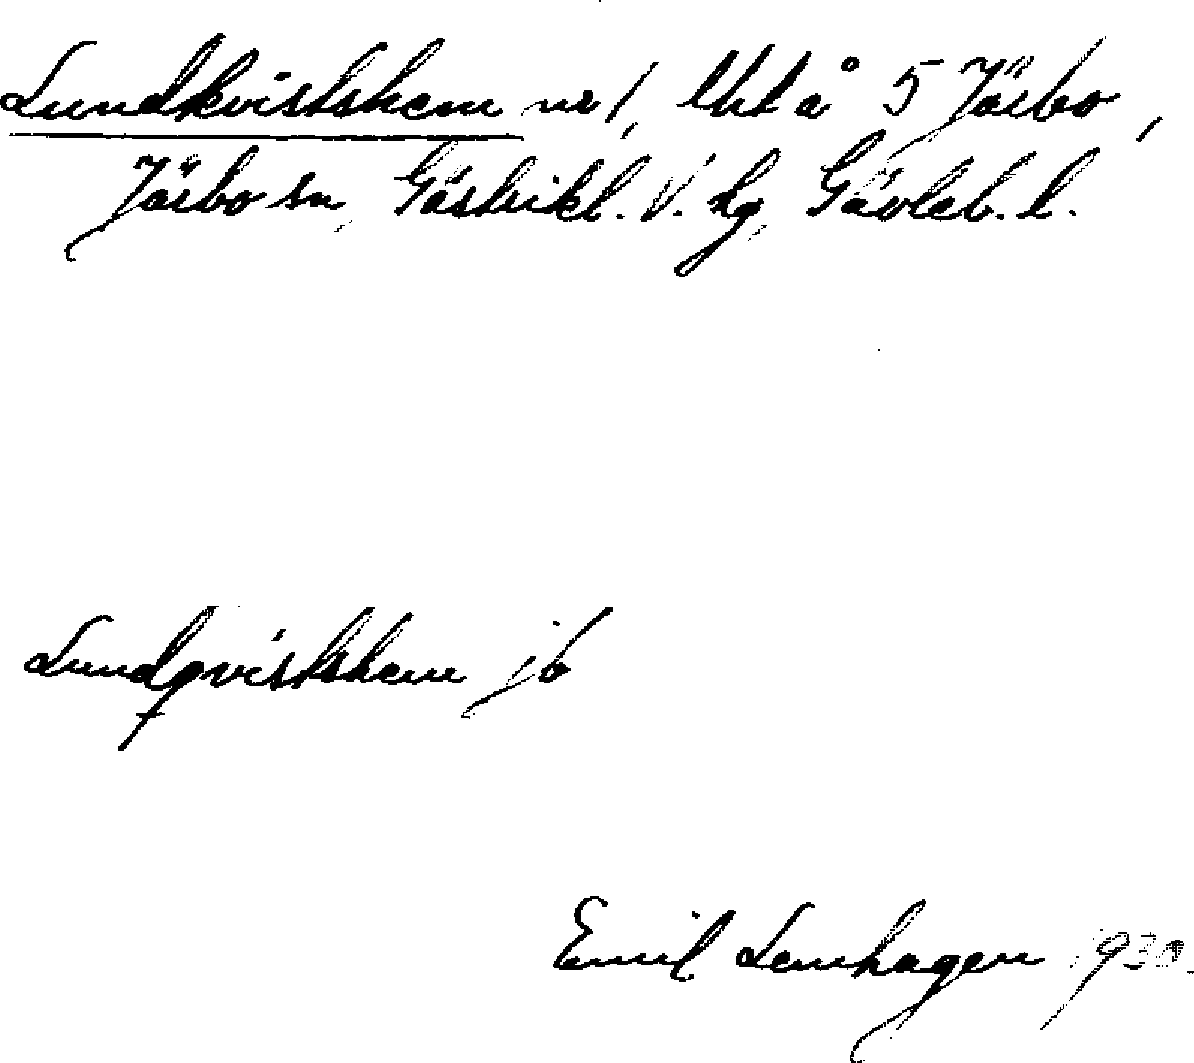 Lundkvistshem nr 1, Uht å 5 Järbo,
Järbo sn, Gästrikl. V. hg, Gävleb. l.
Lundqvistshem jb
Emil Lenhagen 1930.